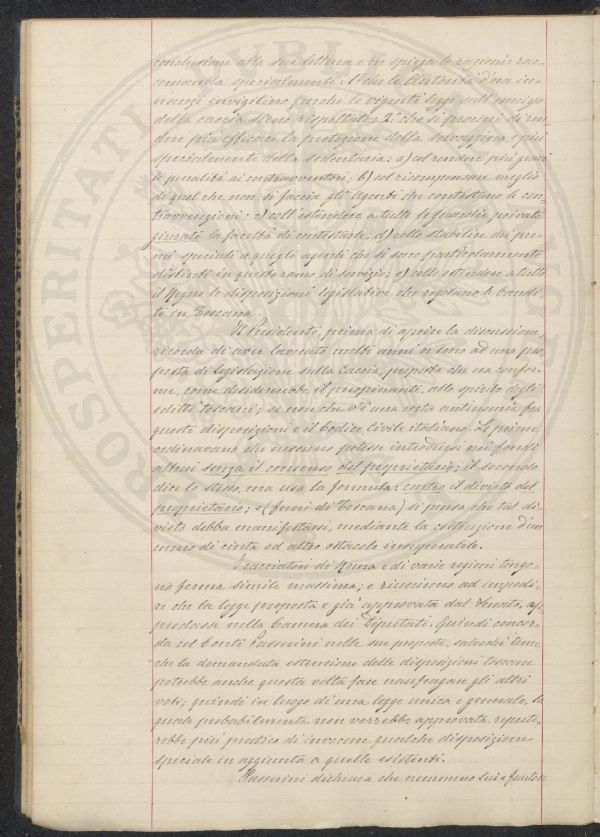 conclusione alla sua lettura e ne spiega le ragioni: rac=
comanda specialmente: 1° che le Autorità d'ora in=
nanzi invigilino perchè le vigenti leggi sull'esercizio
della caccia sieno rispettate; 2° che si procuri di ren
dere più efficace la protezione della selvaggina, e più
specialmente della sedentaria: a) col rendere più gravi
le penalità ai contravventori; b) col ricompensare meglio
di quel che non si faccia gli Agenti che contestano le con
travvenzioni; c) coll'estendere a tutte le guardie private
giurate la facoltà di contestarle; d) collo stabilire dei pre
mi speciali a quegli agenti che si son particolarmente
distinti in questo ramo di servizio; e) colle estendere a tutto
il Regno le disposizioni legislative che regolano le bandi=
te in Toscana.
Il Presidente, prima di aprire la discussione,
ricorda di aver lavorato molti anni or sono ad una pro
posta di legislazione sulla Caccia, proposta che era confor=
me, come desidererebbe il proponente, allo spirito degli
editti toscani; se non che v'è una certa antinomia fra
queste disposizioni e il Codice Civile italiano. Le prime
ordinavano che nessuno potesse introdursi nei fondi
altrui senza il consenso del proprietario; il secondo
dice lo stesso, ma usa la formula: contro il divieto del
proprietario; e (fuori di Toscana) si pensa che tal di=
vieto debba manifestarsi, mediante la costruzione d'un
muro di cinta od altro ostacolo insuperabile.
I cacciatori di Roma e di varie regioni tengo=
no ferma simile massima; e riuscirono ad impedi=
re che la legge proposta e già approvata dal Senato, ap
prodasse nella Camera dei Deputati. Quindi concor=
da col Conte Passerini nelle sue proposte, salvochè teme
che la domandata estensione delle disposizioni toscane
potrebbe anche questa volta fare naufragare gli altri
voti; quindi in luogo di una legge unica e generale, la
quale probabilmente non verrebbe approvata, repute=
rebbe più pratico di invocare qualche disposizione
speciale in aggiunta a quelle esistenti.
Passerini dichiara che nemmeno lui è fautore